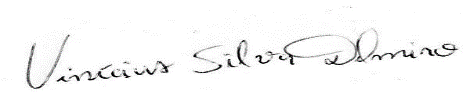 Vinícius Silva Almiro